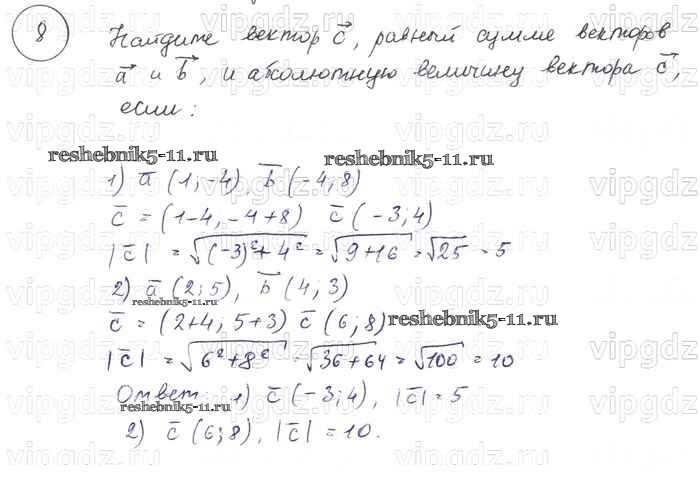 8 Найдите вектор c⃗, равный сумме векторов
a⃗ и b⃗, и абсолютную величину вектора c⃗,
если:
reshebnik5-11.ru reshebnik5-11.ru
1) a̅ (1; -4), b̅ (-4; 8)
c̅ = (1-4, -4+8) c̅ (-3; 4)
|c̅| = √((-3)²+4²) = √(9+16) = √25 = 5
2) a̅ (2; 5), b̅ (4; 3)
reshebnik5-11.ru
c̅ = (2+4; 5+3) c̅ (6; 8) reshebnik5-11.ru
|c̅| = √(6²+8²) = √(36+64) = √100 = 10
Ответ: 1) c̅ (-3; 4), |c̅| = 5
reshebnik5-11.ru
2) c̅ (6; 8), |c̅| = 10.
vipgdz vipgdz vipgdz vipgdz